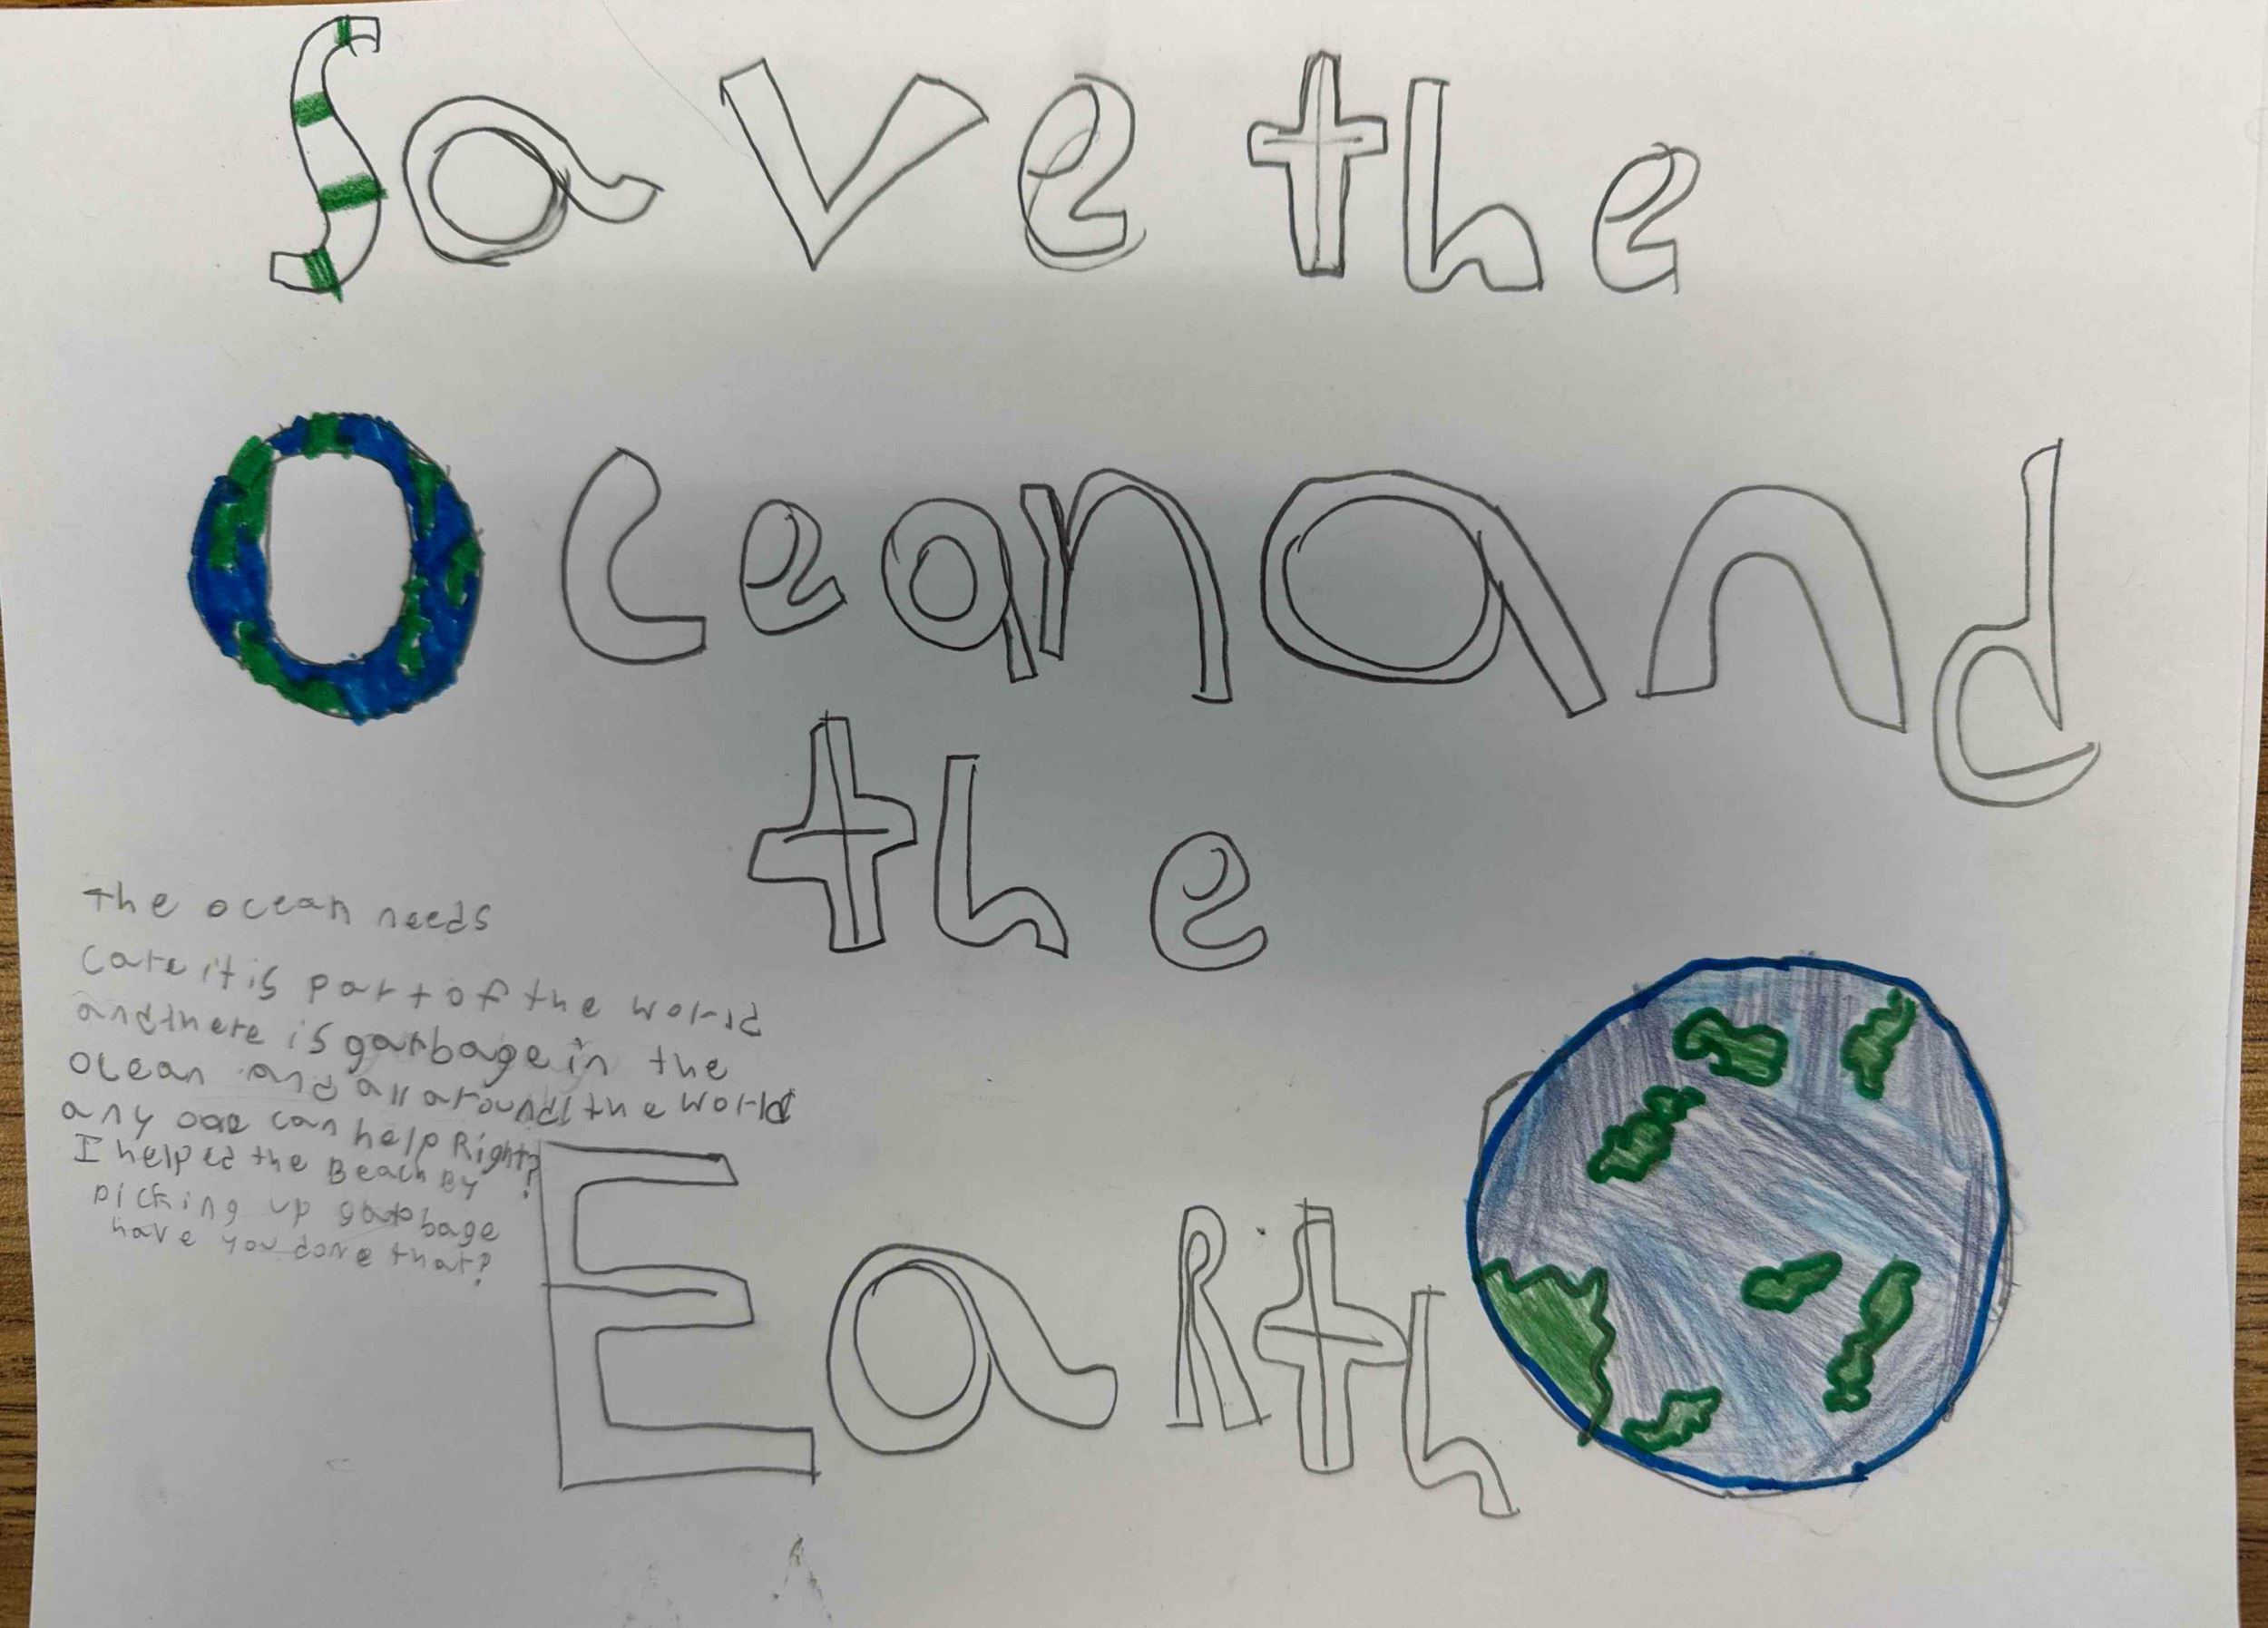 Save the
Ocean and
the
Earth
the ocean needs
care it is part of the world
and there is garbage in the
ocean and all around the world
any one can help Right?
I helped the Beach By
picking up garbage
have you done that?